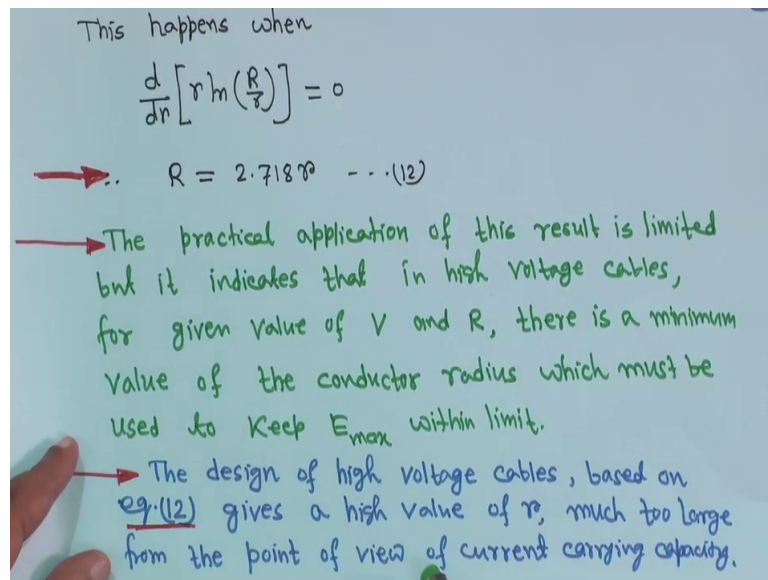 This happens when
d/dr [r ln(R/r)] = 0
∴ R = 2.718r ---(12)
The practical application of this result is limited
but it indicates that in high voltage cables,
for given value of V and R, there is a minimum
value of the conductor radius which must be
used to keep Emax within limit.
The design of high voltage cables, based on
eq.(12) gives a high value of r, much too large
from the point of view of current carrying capacity.